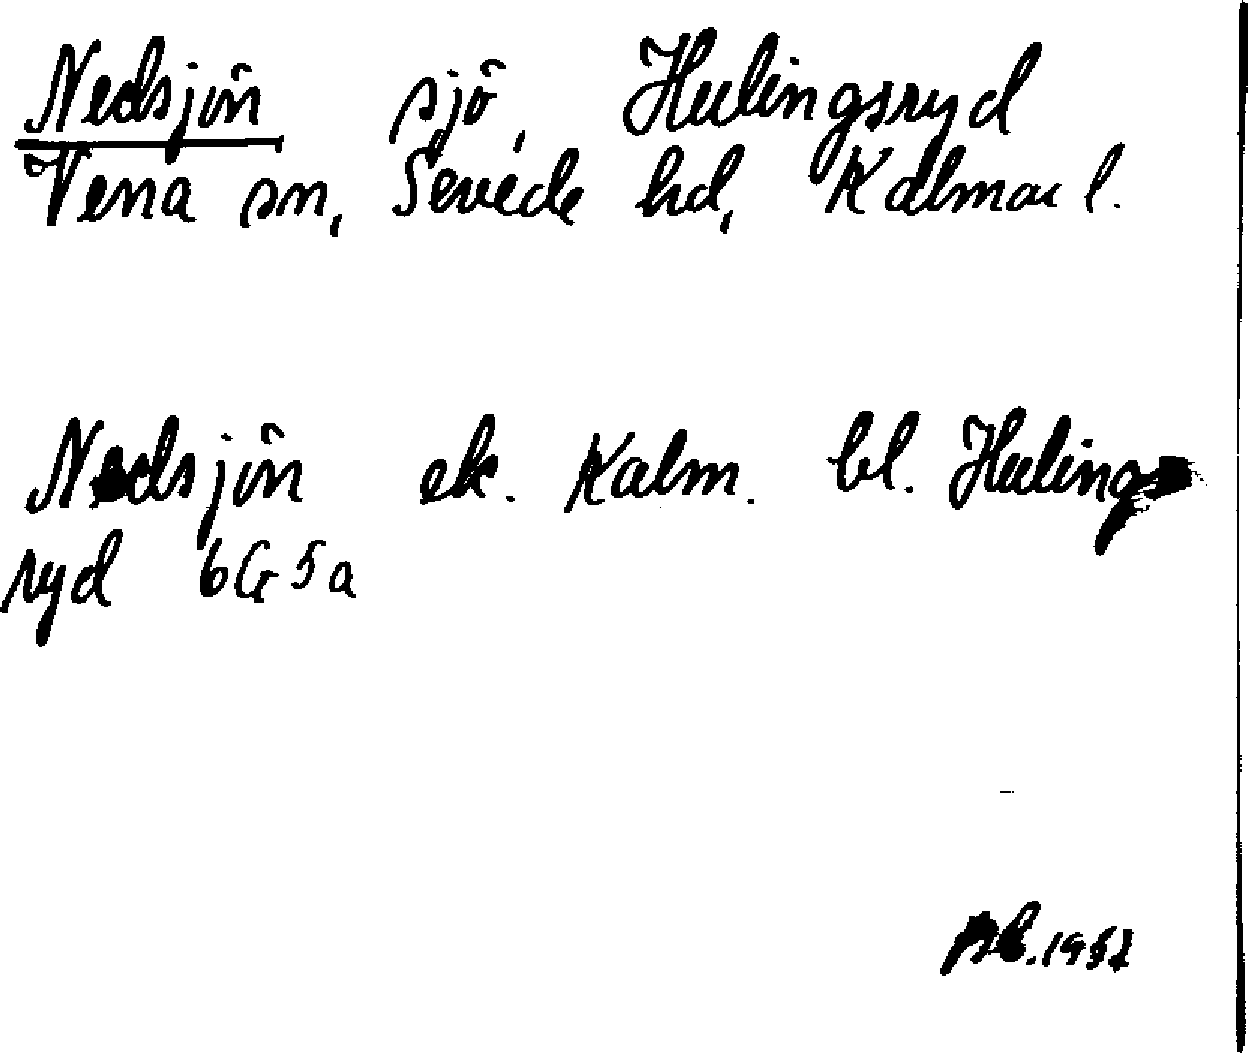 Nedsjön sjö, Hulingsryd
Vena sn, Sevede hd, Kalmar l.
Nedsjön ek. Kalm. bl. Hulings
ryd 6G5a